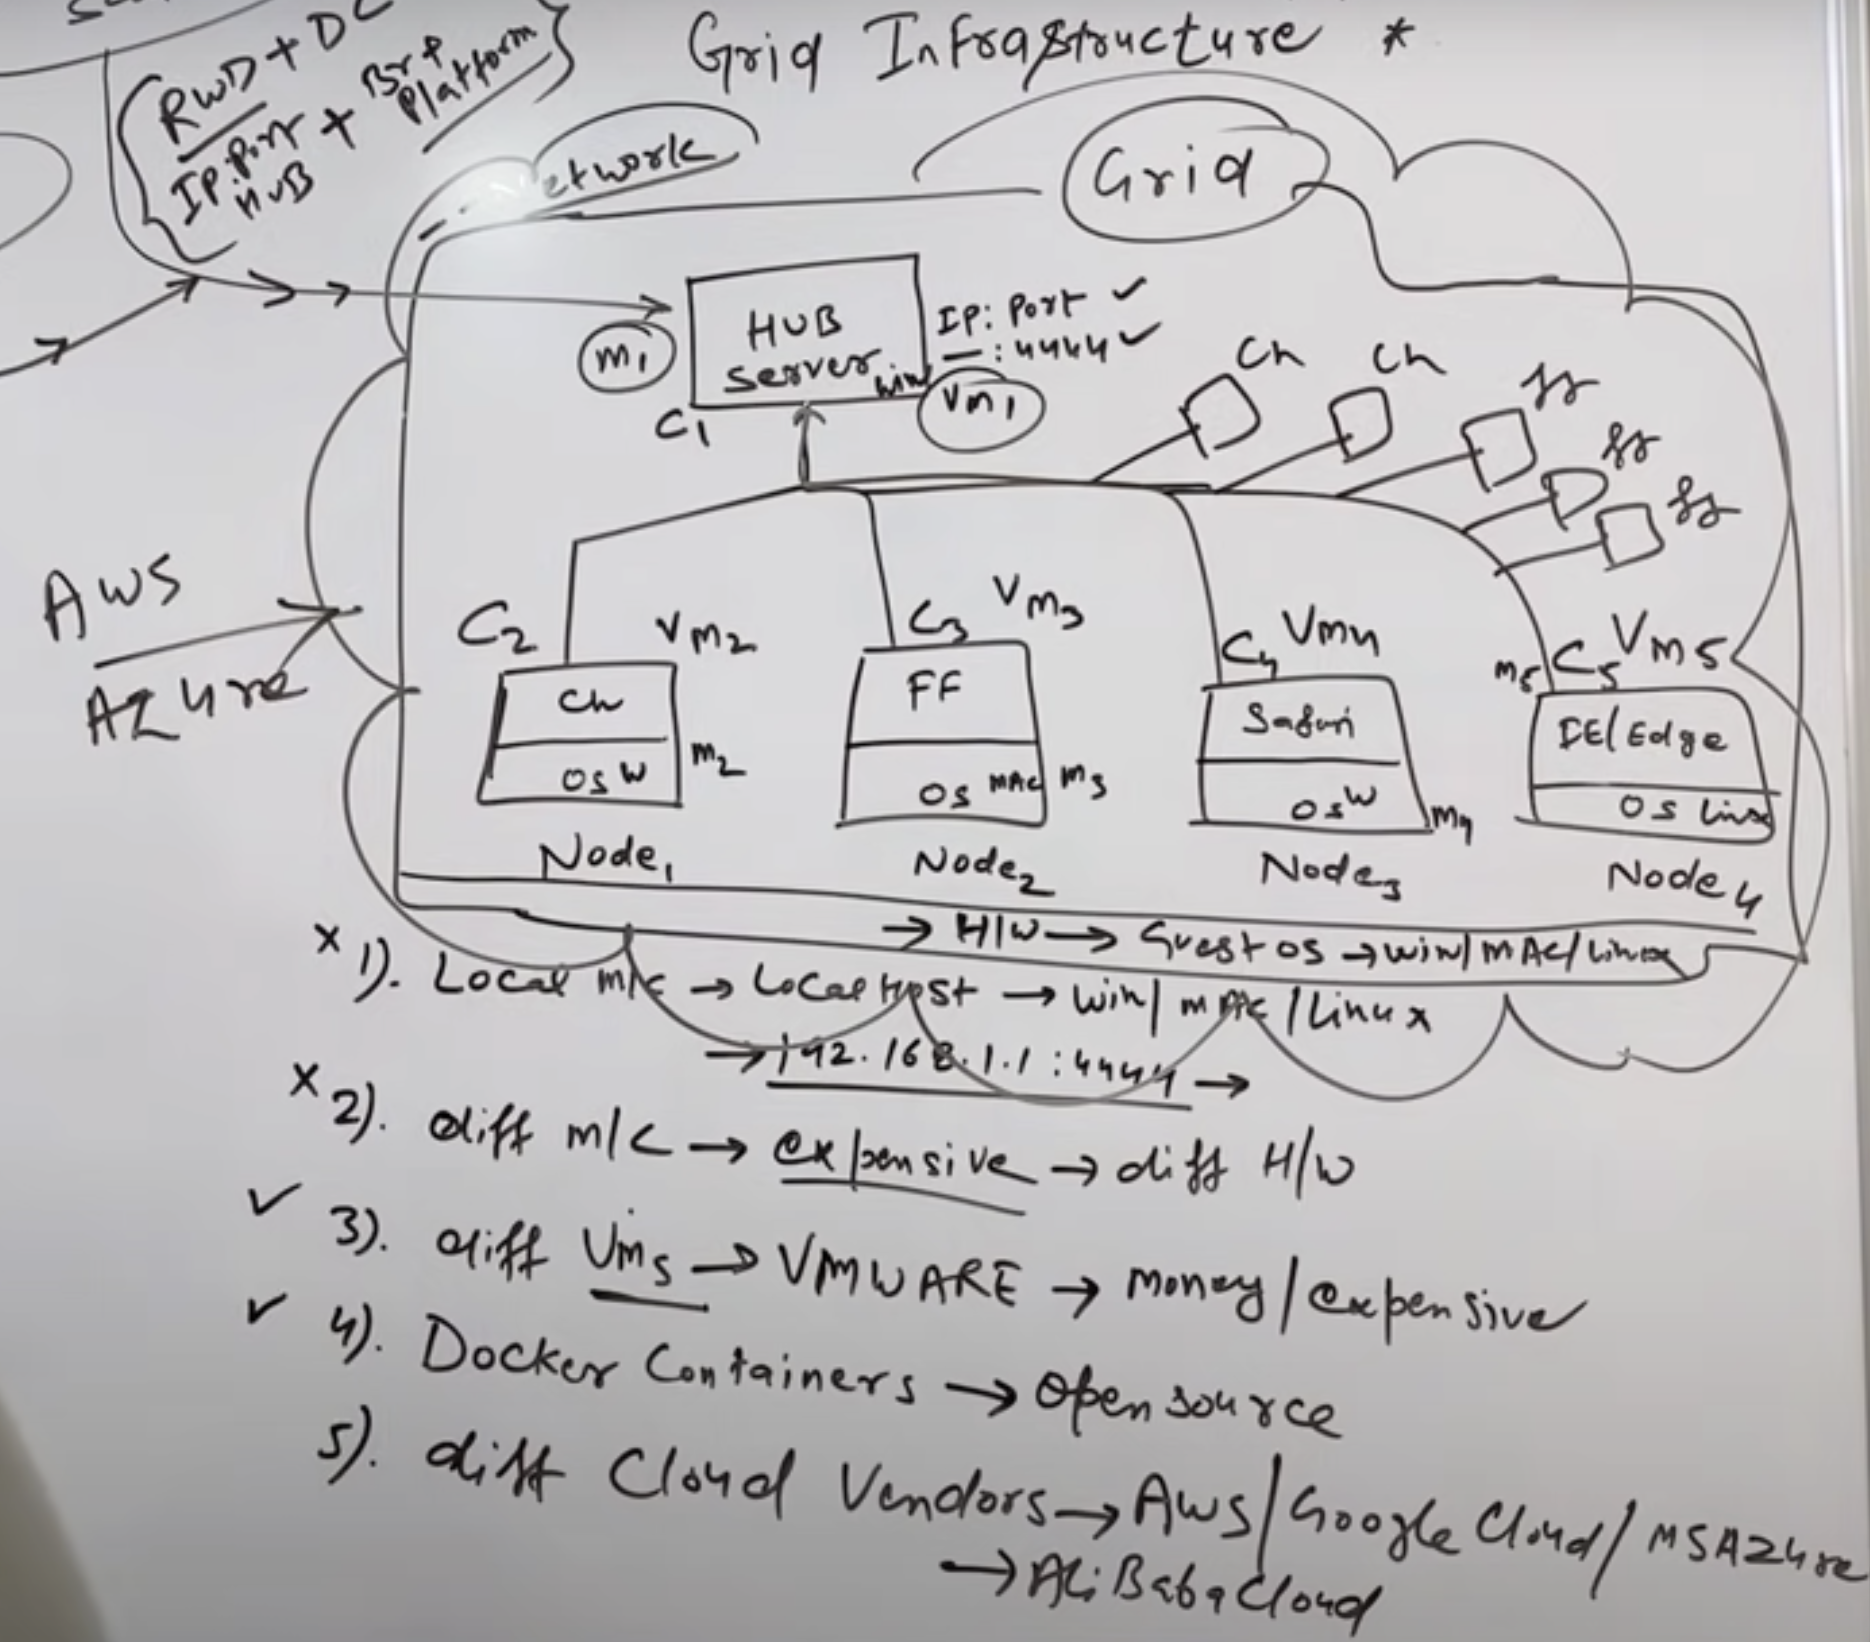 RWD + DC
IP:Port + Br +
HUB Platform
Grid Infrastructure *
etwork
Grid
HUB
Server win
IP: Port ✓
— : 4444 ✓
m1
C1
Vm1
Ch
Ch
ff
ff
ff
AWS
Azure
C2
Vm2
Ch
OS W
m2
Node1
C3
Vm3
FF
OS MAC
m3
Node2
C4
Vm4
Safari
OS W
m4
Node3
m5
C5
Vm5
IE/Edge
OS Linx
Node4
→ H/W → Guest OS → win/MAC/Linux
x 1). Local m/c → LocalHost → win/MAC/Linux
→ 192.168.1.1:4444 →
x 2). diff m/c → expensive → diff H/W
✓ 3). diff Vms → VMWARE → money/expensive
✓ 4). Docker Containers → Open source
5). diff Cloud Vendors → AWS/Google Cloud/MSAzure
→ AliBabaCloud